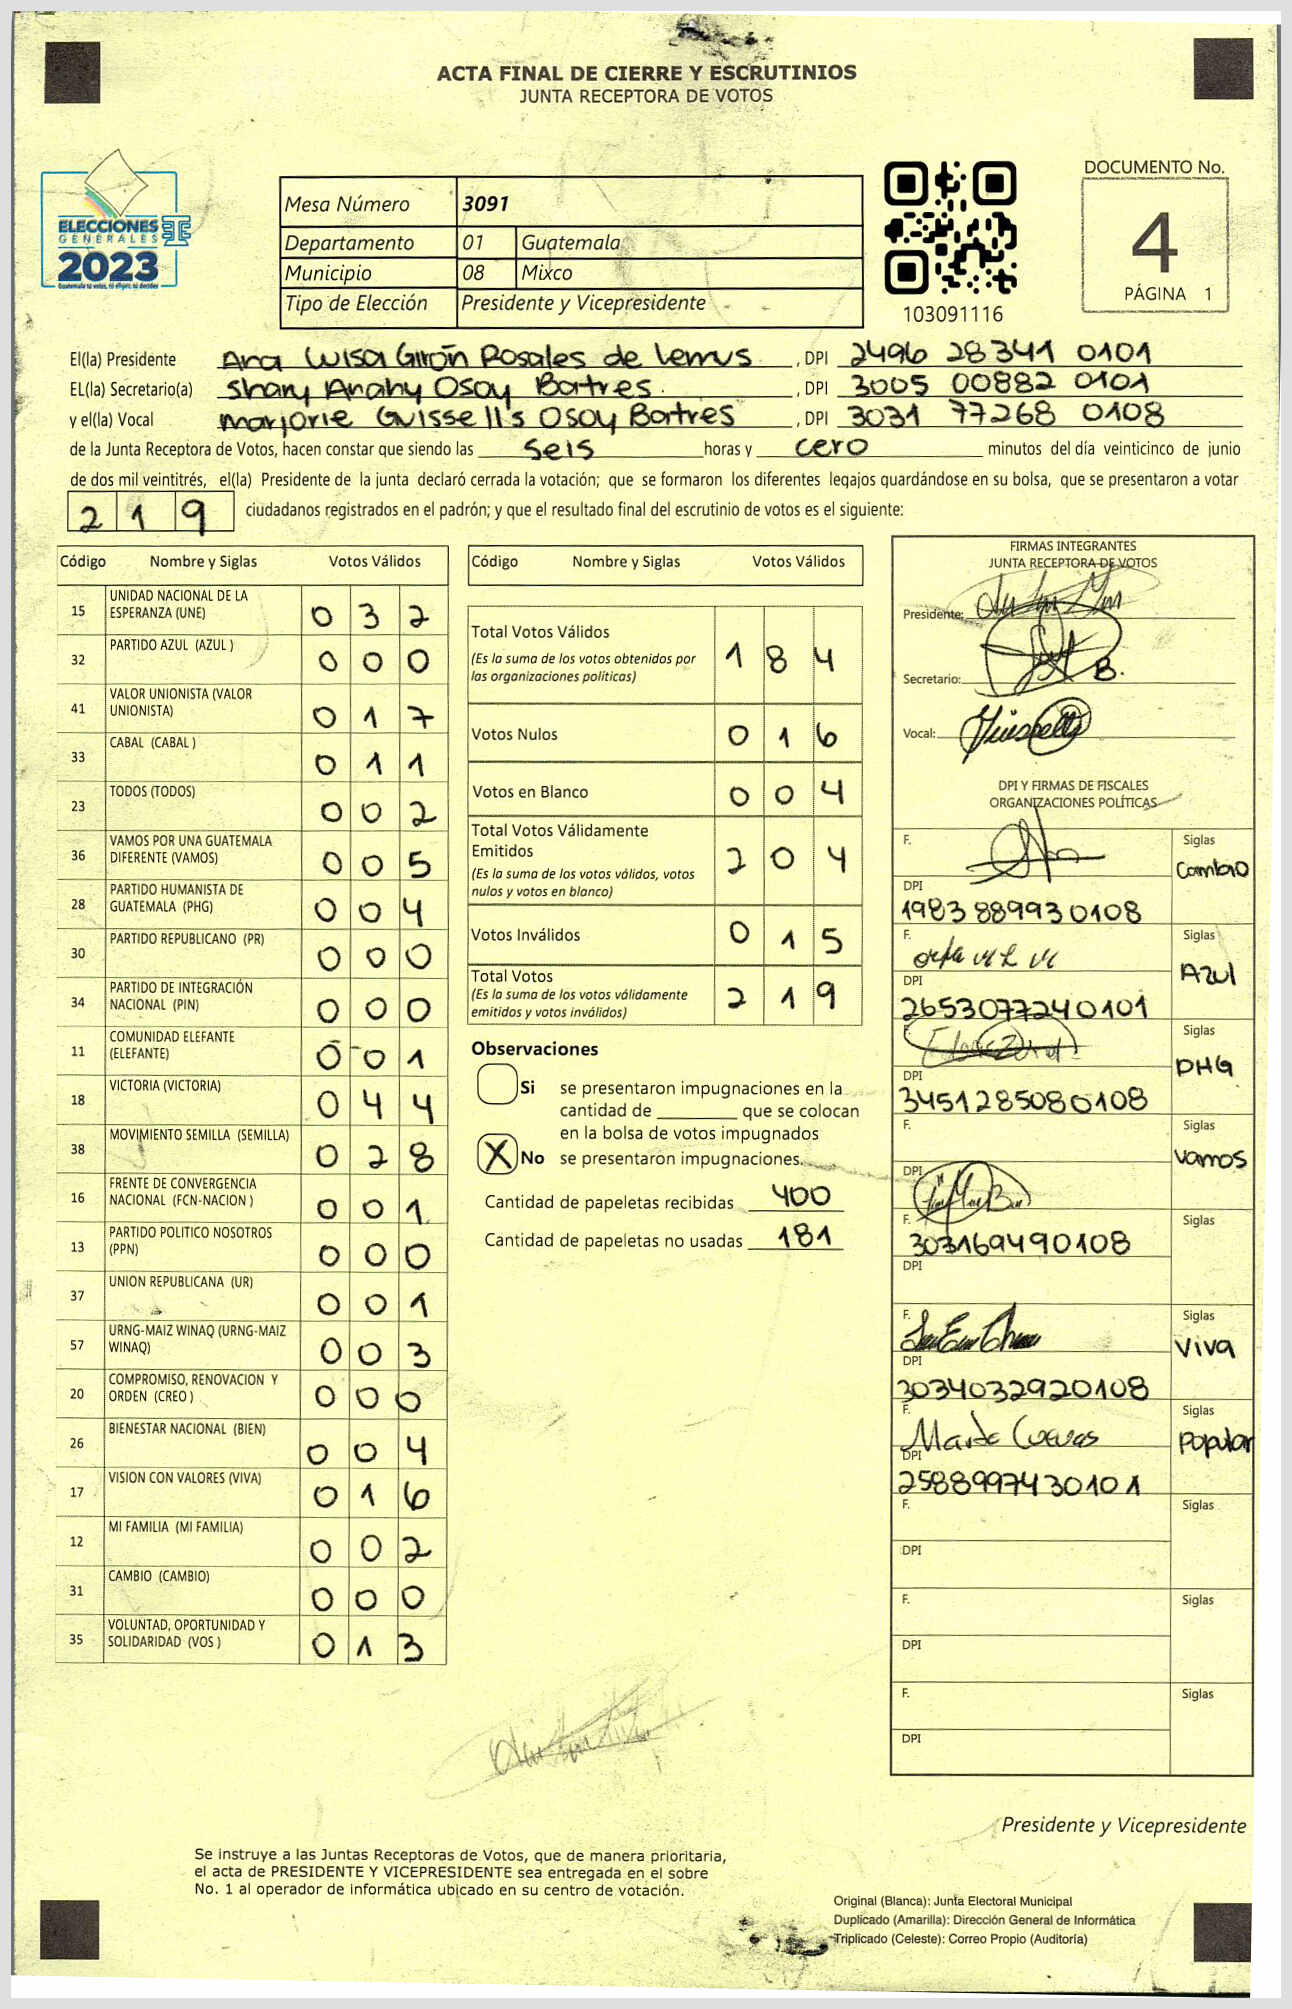 ACTA FINAL DE CIERRE Y ESCRUTINIOS
JUNTA RECEPTORA DE VOTOS
ELECCIONES
GENERALES
2023
Mesa Número 3091
Departamento 01 Guatemala
Municipio 08 Mixco
Tipo de Elección Presidente y Vicepresidente
103091116
DOCUMENTO No.
4
PÁGINA 1
El(la) Presidente Ana Luisa Girón Rosales de Lemus , DPI 2496 28341 0101
EL(la) Secretario(a) Shary Anahy Osoy Batres . , DPI 3005 00882 0101
y el(la) Vocal Marjorie Guissell's Osoy Batres , DPI 3031 77268 0108
de la Junta Receptora de Votos, hacen constar que siendo las seis horas y cero minutos del día veinticinco de junio
de dos mil veintitrés, el(la) Presidente de la junta declaró cerrada la votación; que se formaron los diferentes legajos guardándose en su bolsa, que se presentaron a votar
219 ciudadanos registrados en el padrón; y que el resultado final del escrutinio de votos es el siguiente:
Código Nombre y Siglas Votos Válidos
15 UNIDAD NACIONAL DE LA
ESPERANZA (UNE) 032
32 PARTIDO AZUL (AZUL ) 000
41 VALOR UNIONISTA (VALOR
UNIONISTA) 017
33 CABAL (CABAL ) 011
23 TODOS (TODOS) 002
36 VAMOS POR UNA GUATEMALA
DIFERENTE (VAMOS) 005
28 PARTIDO HUMANISTA DE
GUATEMALA (PHG) 004
30 PARTIDO REPUBLICANO (PR) 000
34 PARTIDO DE INTEGRACIÓN
NACIONAL (PIN) 000
11 COMUNIDAD ELEFANTE
(ELEFANTE) 001
18 VICTORIA (VICTORIA) 044
38 MOVIMIENTO SEMILLA (SEMILLA) 028
16 FRENTE DE CONVERGENCIA
NACIONAL (FCN-NACION ) 001
13 PARTIDO POLITICO NOSOTROS
(PPN) 000
37 UNION REPUBLICANA (UR) 001
57 URNG-MAIZ WINAQ (URNG-MAIZ
WINAQ) 003
20 COMPROMISO, RENOVACION Y
ORDEN (CREO ) 000
26 BIENESTAR NACIONAL (BIEN) 004
17 VISION CON VALORES (VIVA) 016
12 MI FAMILIA (MI FAMILIA) 002
31 CAMBIO (CAMBIO) 000
35 VOLUNTAD, OPORTUNIDAD Y
SOLIDARIDAD (VOS ) 013
Código Nombre y Siglas Votos Válidos
Total Votos Válidos 184
(Es la suma de los votos obtenidos por
las organizaciones políticas)
Votos Nulos 016
Votos en Blanco 004
Total Votos Válidamente
Emitidos 204
(Es la suma de los votos válidos, votos
nulos y votos en blanco)
Votos Inválidos 015
Total Votos 219
(Es la suma de los votos válidamente
emitidos y votos inválidos)
Observaciones
Si se presentaron impugnaciones en la
cantidad de ________ que se colocan
en la bolsa de votos impugnados
X No se presentaron impugnaciones.
Cantidad de papeletas recibidas 400
Cantidad de papeletas no usadas 181
FIRMAS INTEGRANTES
JUNTA RECEPTORA DE VOTOS
Presidente:
Secretario: B.
Vocal:
DPI Y FIRMAS DE FISCALES
ORGANIZACIONES POLÍTICAS
F. Siglas
Cambio
DPI
1983 88993 0108
F. Siglas
Azul
DPI
2653077240101
F. Siglas
PHG
DPI
3451285080108
F. Siglas
Vamos
DPI
F. Siglas
303169490108
DPI
F. Siglas
Viva
DPI
3034032920108
F. Siglas
Marta Cuevas Popular
DPI
2588997430101
F. Siglas
DPI
F. Siglas
DPI
F. Siglas
DPI
Presidente y Vicepresidente
Se instruye a las Juntas Receptoras de Votos, que de manera prioritaria,
el acta de PRESIDENTE Y VICEPRESIDENTE sea entregada en el sobre
No. 1 al operador de informática ubicado en su centro de votación.
Original (Blanca): Junta Electoral Municipal
Duplicado (Amarilla): Dirección General de Informática
Triplicado (Celeste): Correo Propio (Auditoría)